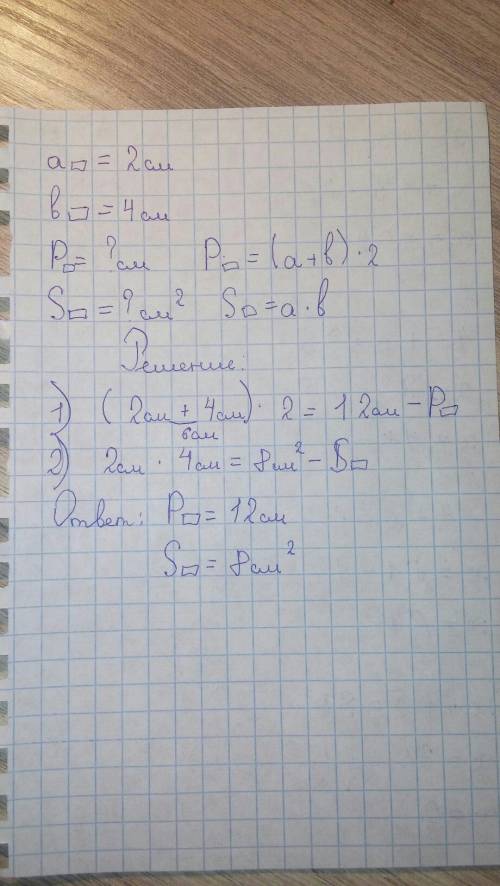 a▭ = 2см
в▭ = 4см
P▭ = ?см P▭ = (a+в)·2
S▭ = ?см² S▭ = a·в
Решение:
1) (2см + 4см)· 2 = 12см – P▭
6см
2) 2см · 4см = 8см² – S▭
Ответ: P▭ = 12см
S▭ = 8см²